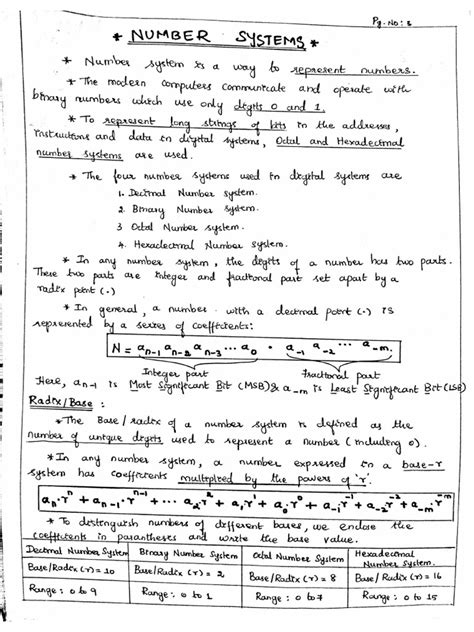 Pg.No: 3
* NUMBER SYSTEMS *
* Number system is a way to represent numbers.
* The modern computers communicate and operate with
binary numbers which use only digits 0 and 1.
* To represent long strings of bits in the addresses,
instructions and data in digital systems, Octal and Hexadecimal
number systems are used.
* The four number systems used in digital systems are
1. Decimal Number System.
2. Binary Number System.
3. Octal Number System.
4. Hexadecimal Number System.
* In any number system, the digits of a number has two parts.
These two parts are integer and fractional part set apart by a
radix point (.)
* In general, a number with a decimal point (.) is
represented by a series of coefficients:
N = a_{n-1} a_{n-2} a_{n-3} ... a_0 . a_{-1} a_{-2} ... a_{-m}.
Integer part Fractional part
Here, a_{n-1} is Most Significant Bit (MSB) & a_{-m} is Least Significant Bit (LSB)
Radix/Base :
* The Base / radix of a number system is defined as the
number of unique digits used to represent a number (including 0).
* In any number system, a number expressed in a base-r
system has coefficients multiplied by the powers of 'r'.
a_n.r^n + a_{n-1}.r^{n-1} + ... a_2.r^2 + a_1.r^1 + a_0.r^0 + a_{-1}.r^{-1} + a_{-2}.r^{-2} + a_{-m}.r^{-m}
* To distinguish numbers of different bases, we enclose the
coefficients in parantheses and write the base value.
Decimal Number System Binary Number System Octal Number System Hexadecimal
Number System.
Base/Radix (r) = 10 Base/Radix (r) = 2 Base/Radix (r) = 8 Base/Radix (r) = 16
Range : 0 to 9 Range : 0 to 1 Range : 0 to 7 Range : 0 to 15